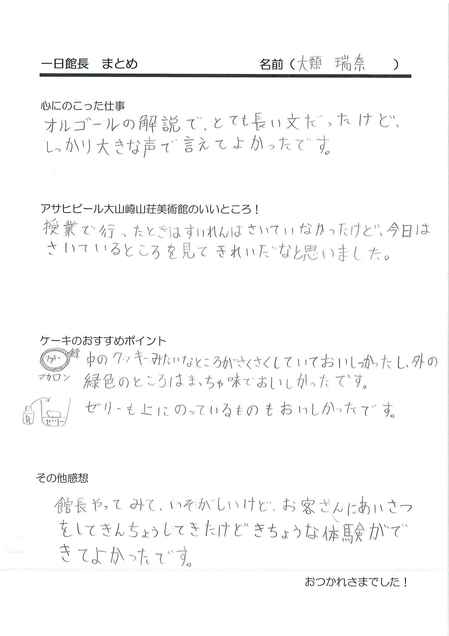 一日館長 まとめ 名前（大類 瑞奈 ）
心にのこった仕事
オルゴールの解説で、とても長い文だったけど、
しっかり大きな声で言えてよかったです。
アサヒビール大山崎山荘美術館のいいところ！
授業で行、たときはすいれんはさいていなかったけど、今日は
さいているところを見てきれいだなと思いました。
ケーキのおすすめポイント
中のクッキーみたいなところがさくさくしていておいしかったし、外の
マカロン
緑色のところはまっちゃ味でおいしかったです。
ゼリーも上にのっているものもおいしかったです。
ゼリー
その他感想
館長やってみて、いそがしいけど、お客さんにあいさつ
をしてきんちょうしてきたけどきちょうな体験がで
きてよかったです。
おつかれさまでした！